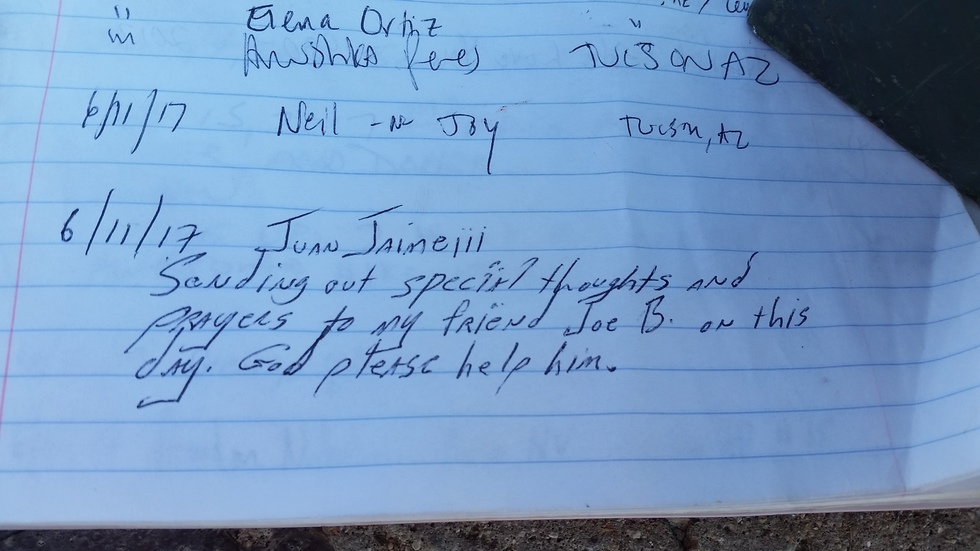 " Elena Ortiz "
" Anushka TUCSON AZ
6/11/17 Neil -n- Joy Tucson, AZ
6/11/17 Juan Jaime iii
Sending out special thoughts and
prayers to my friend Joe B. on this
day. God please help him.